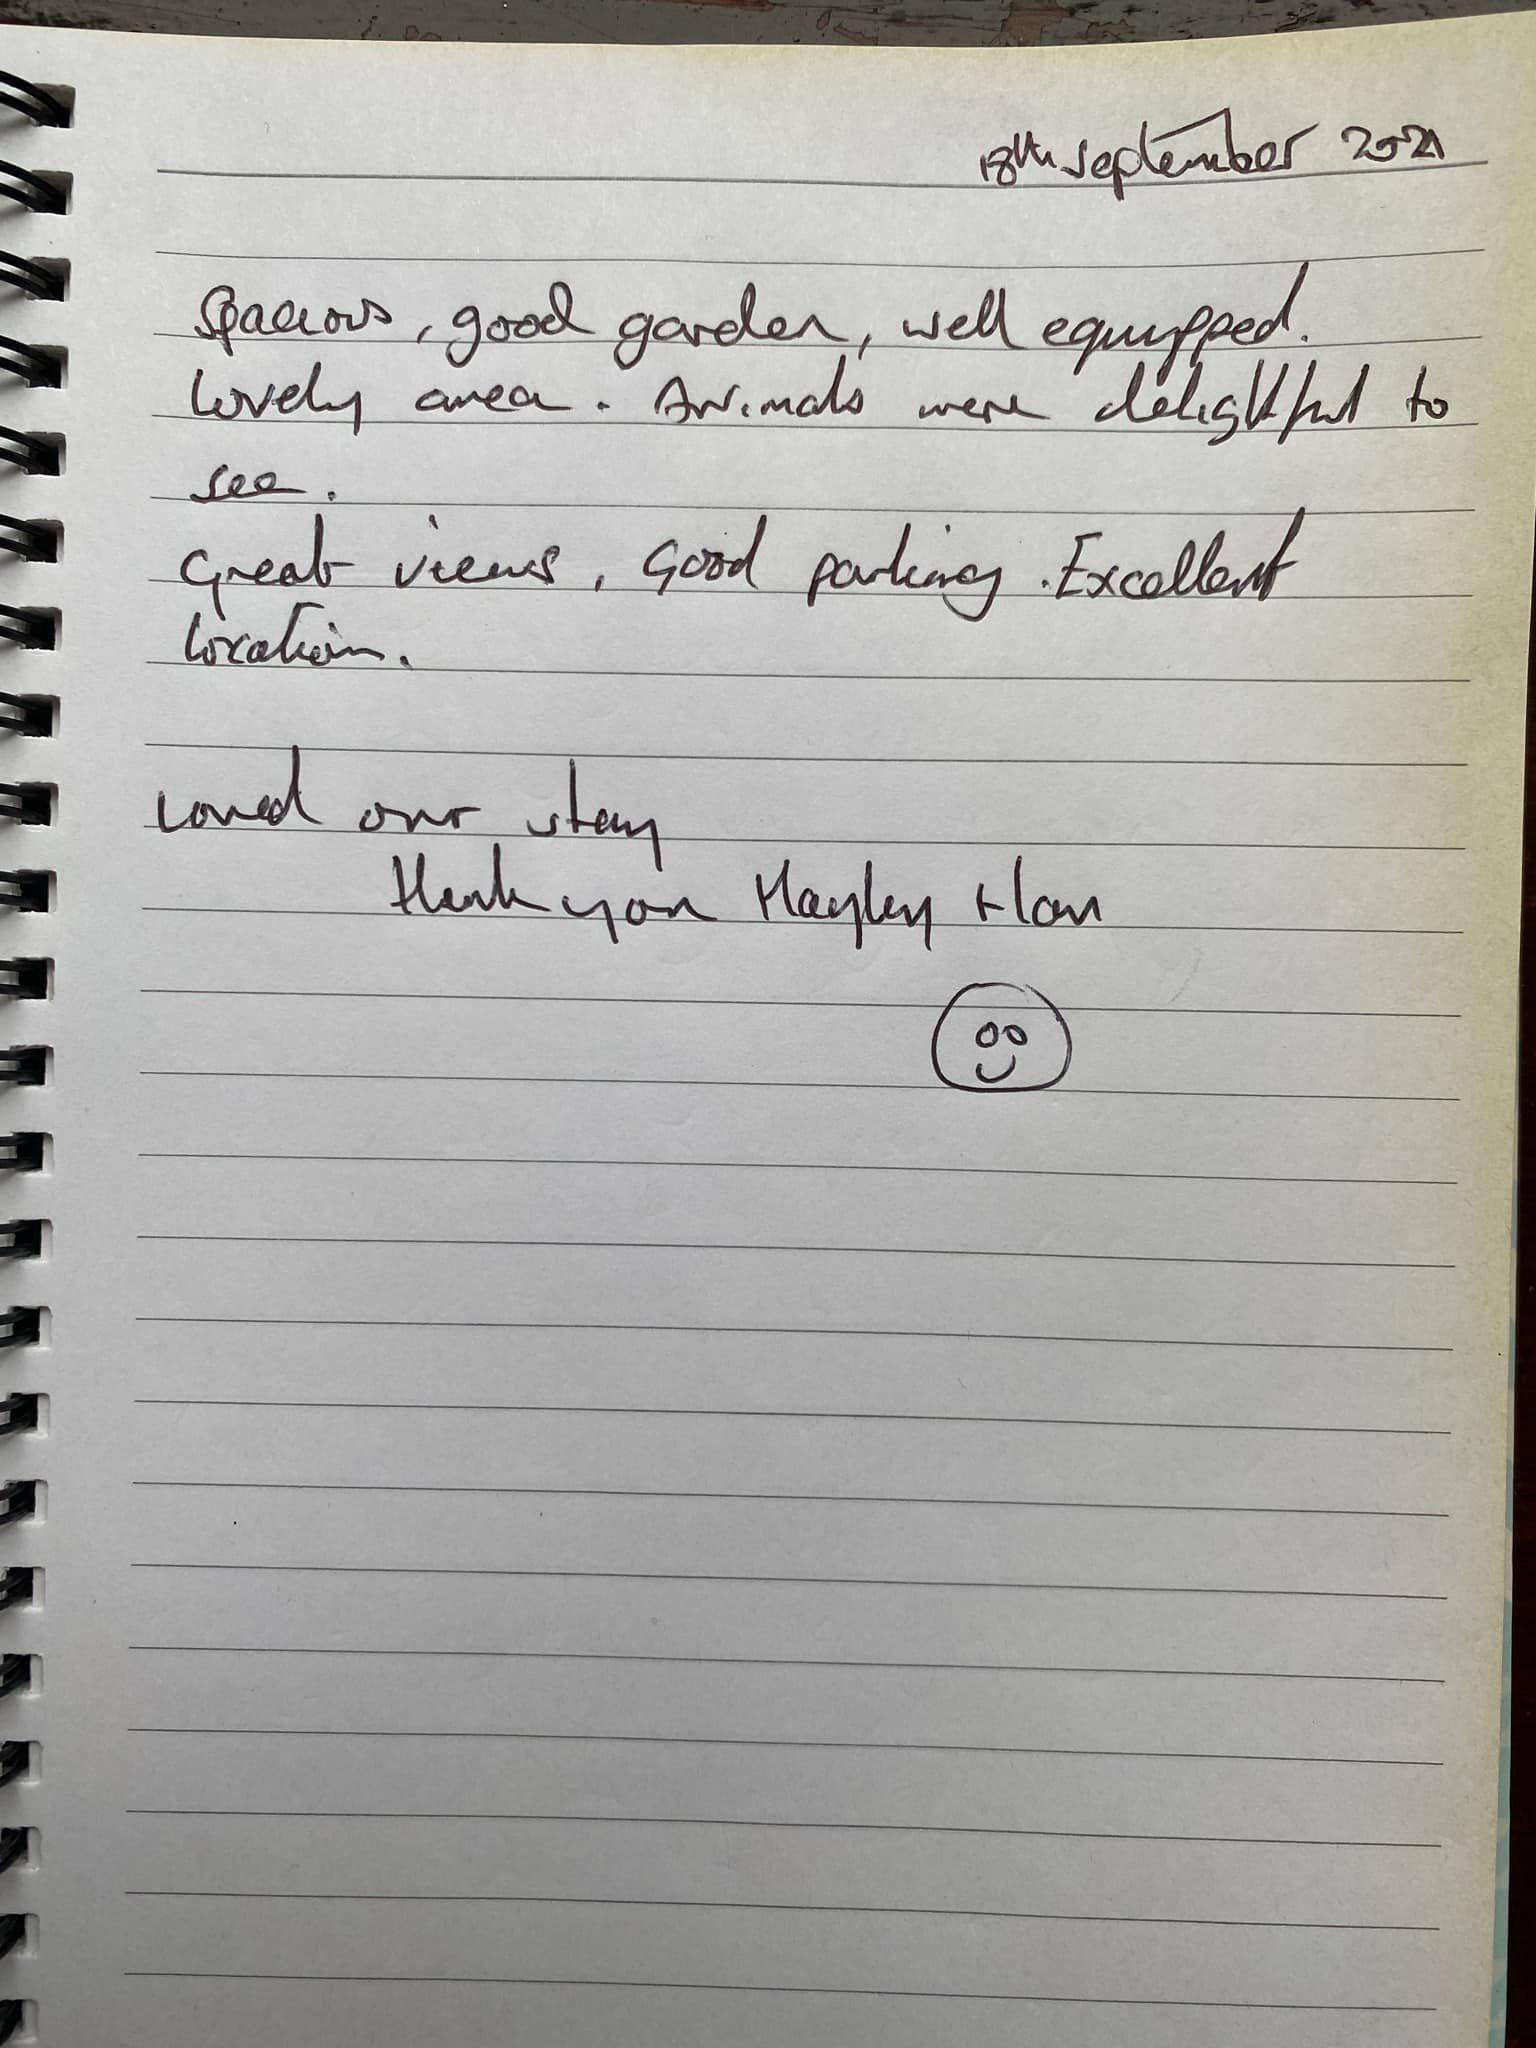 18th September 2021
Spacious, good garden, well equipped.
Lovely area. Animals were delightful to
see.
Great views, Good parking. Excellent
location.
Loved our stay
Thank you Hayley